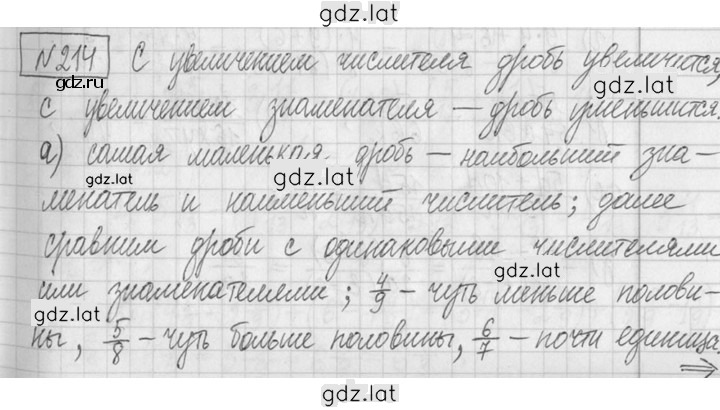 gdz.lat
№214 С увеличением числителя дробь увеличится,
gdz.ru gdz.lat
с увеличением знаменателя – дробь уменьшится.
а) самая маленькая дробь – наибольший зна-
gdz.lat gdz.lat
менатель и наименьший числитель; далее
сравним дроби с одинаковыми числителями
gdz.lat
или знаменателями; 4/9 – чуть меньше полови-
gdz.lat
ны, 5/8 – чуть больше половины, 6/7 – почти единица
⇒
gdz.lat